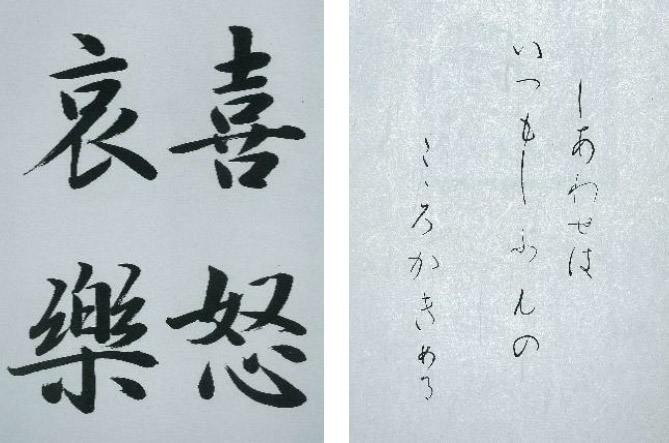 喜怒
哀樂
しあわせは
いつもじぶんの
こころがきめる